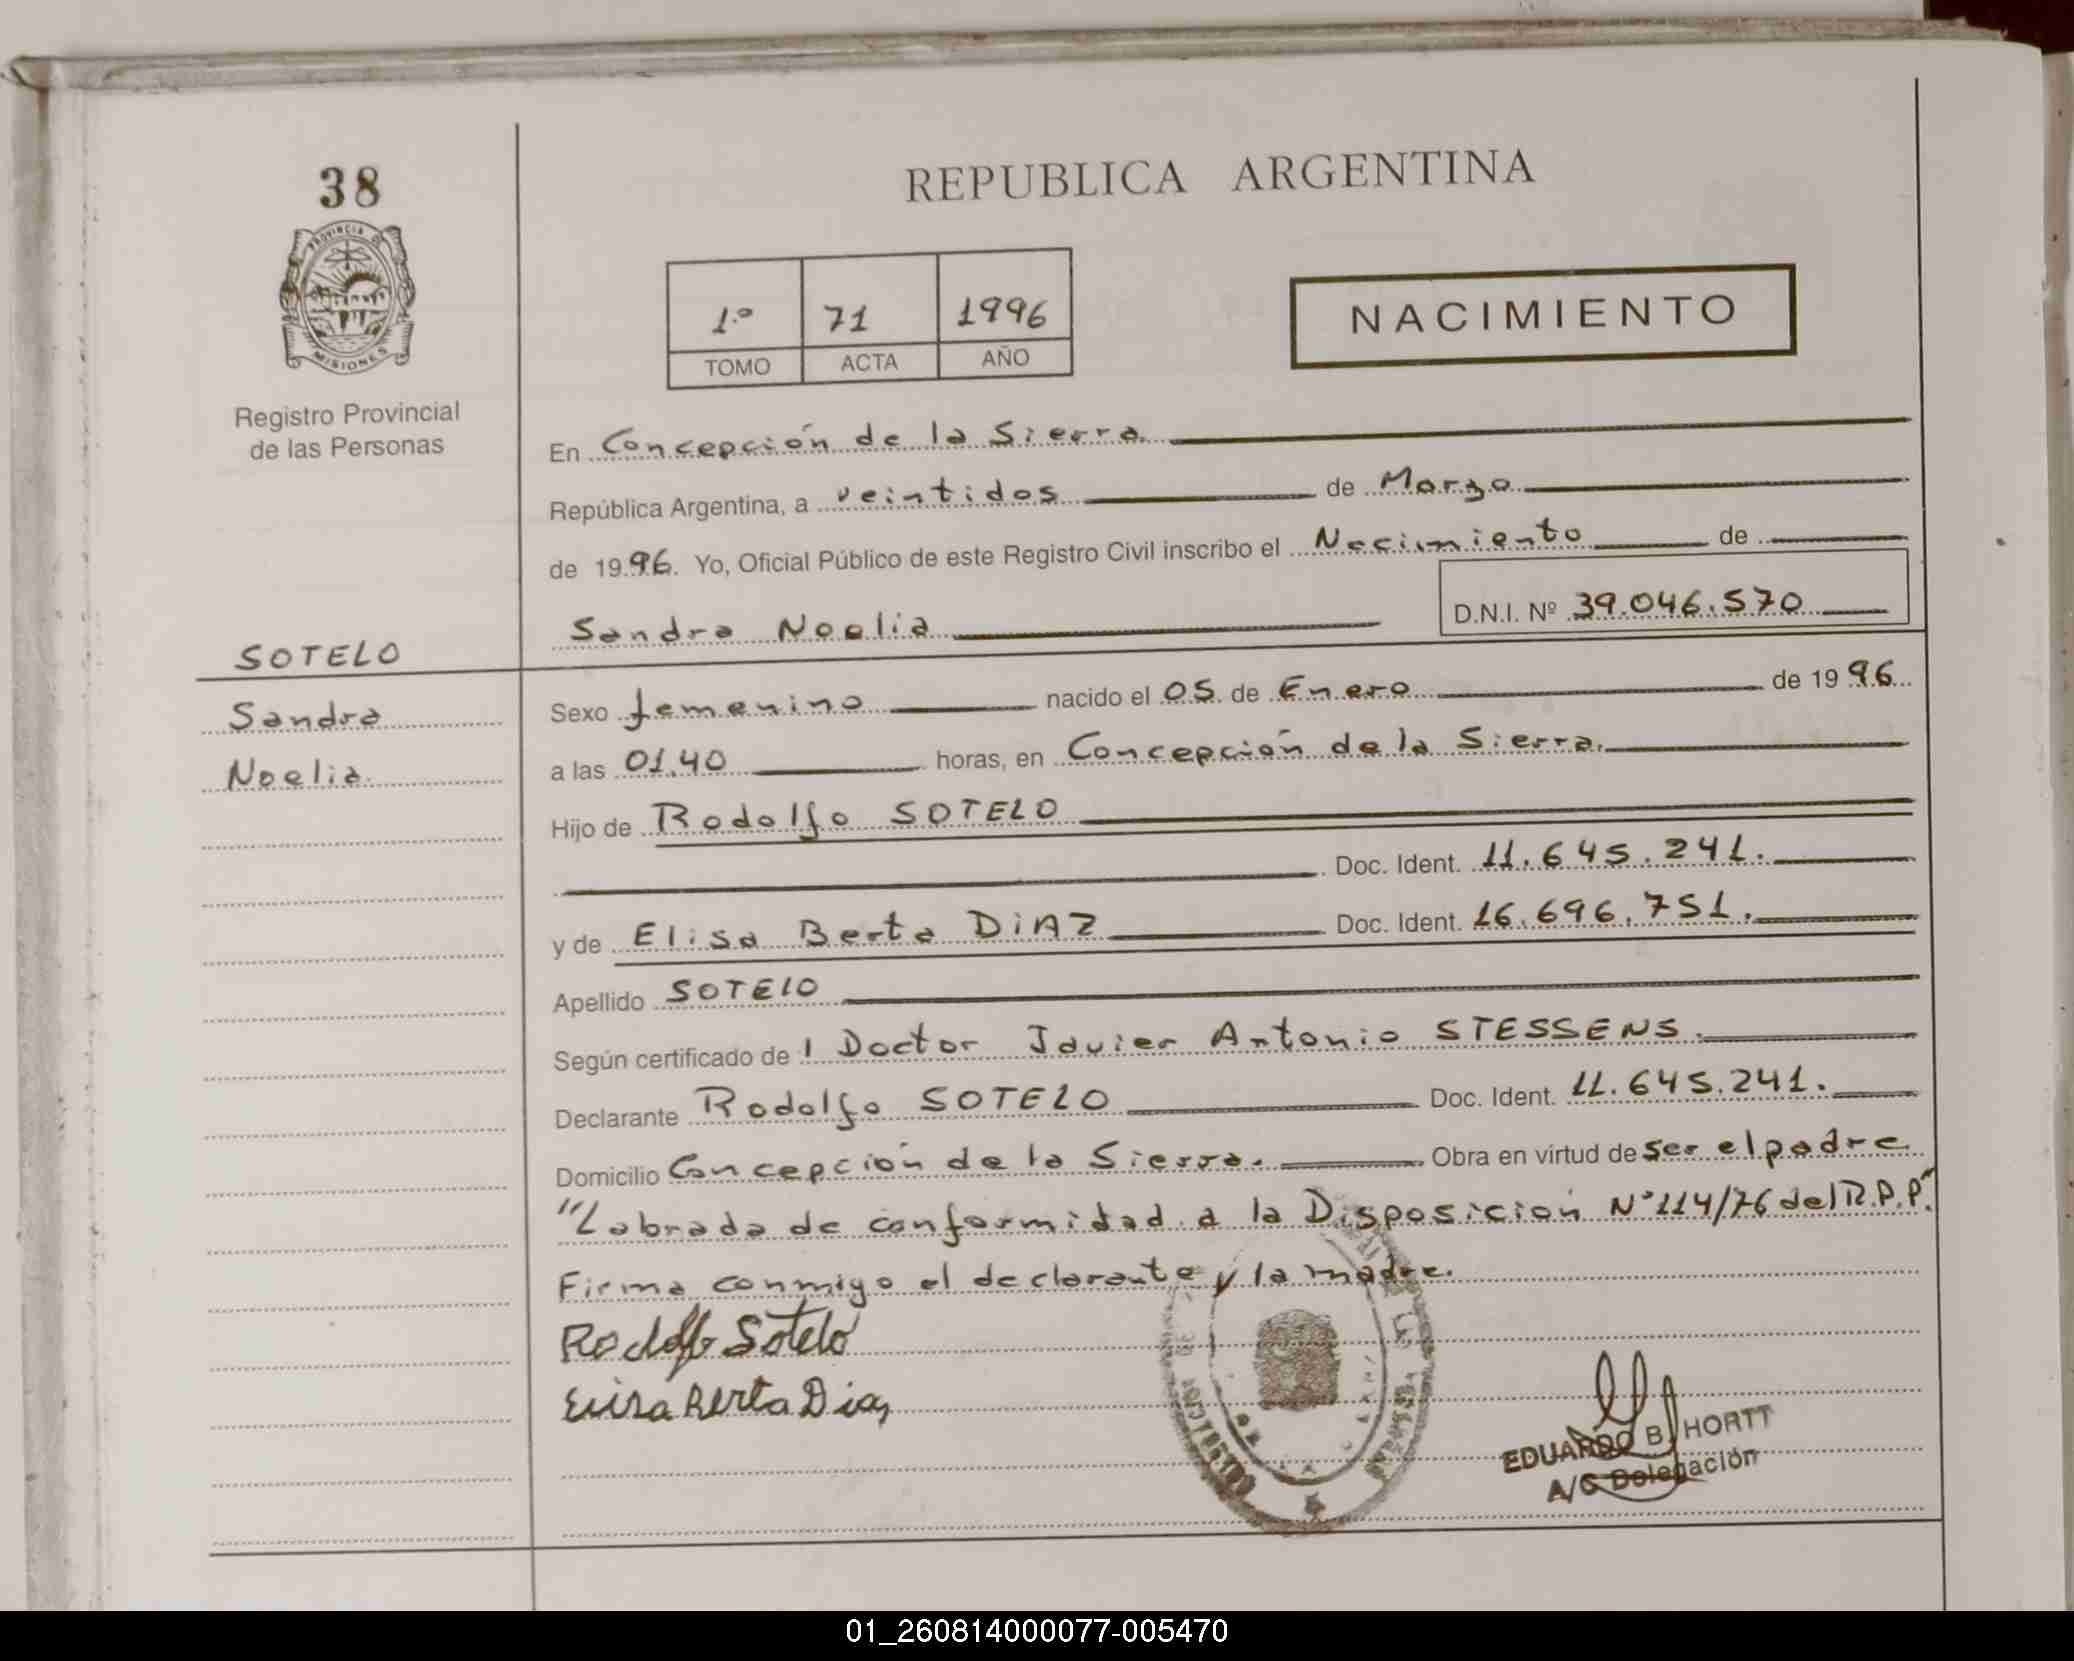 38
PROVINCIA DE
MISIONES
Registro Provincial
de las Personas
SOTELO
Sandra
Noelia
REPUBLICA ARGENTINA
1º 71 1996
TOMO ACTA AÑO
NACIMIENTO
En Concepción de la Sierra
República Argentina, a veintidos de Marzo
de 1996. Yo, Oficial Público de este Registro Civil inscribo el Nacimiento de
Sandra Noelia D.N.I. Nº 39.046.570
Sexo femenino nacido el 05 de Enero de 1996
a las 01.40 horas, en Concepción de la Sierra.
Hijo de Rodolfo SOTELO
Doc. Ident. 11.645.241.
y de Elisa Berta DiAZ Doc. Ident. 16.696.751.
Apellido SOTELO
Según certificado de l Doctor Javier Antonio STESSENS.
Declarante Rodolfo SOTELO Doc. Ident. 11.645.241.
Domicilio Concepción de la Sierra. Obra en virtud de ser el padre
"Labrada de conformidad a la Disposición Nº 114/76 del R.P.P."
Firma conmigo el declarante y la madre.
Rodolfo Sotelo
Elisa Berta Diaz
EDUARDO B. HORTT
A/C Delegación
01_260814000077-005470